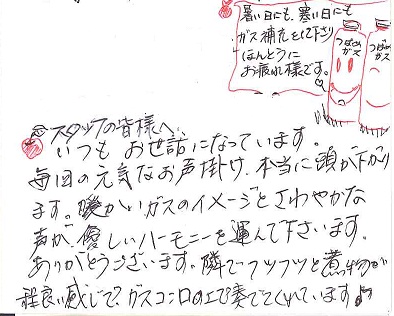 暑い日にも、寒い日にも
ガス補充をして下さり
ほんとうに
お疲れ様です。
つばめ
ガス
つばめ
ガス
スタッフの皆様へ
いつも お世話になっています。
毎回の元気なお声掛け、本当に頭が下がり
ます。暖かいガスのイメージとさわやかな
声が、優しいハーモニーを運んで下さいます。
ありがとうございます。隣でフツフツと煮っ物が
程良い感じで?ガスコンロの上で奏でてくれています